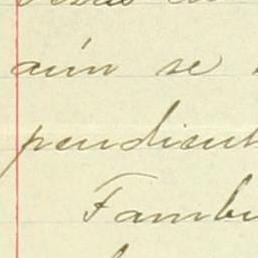 aún se
pendient
Tambi